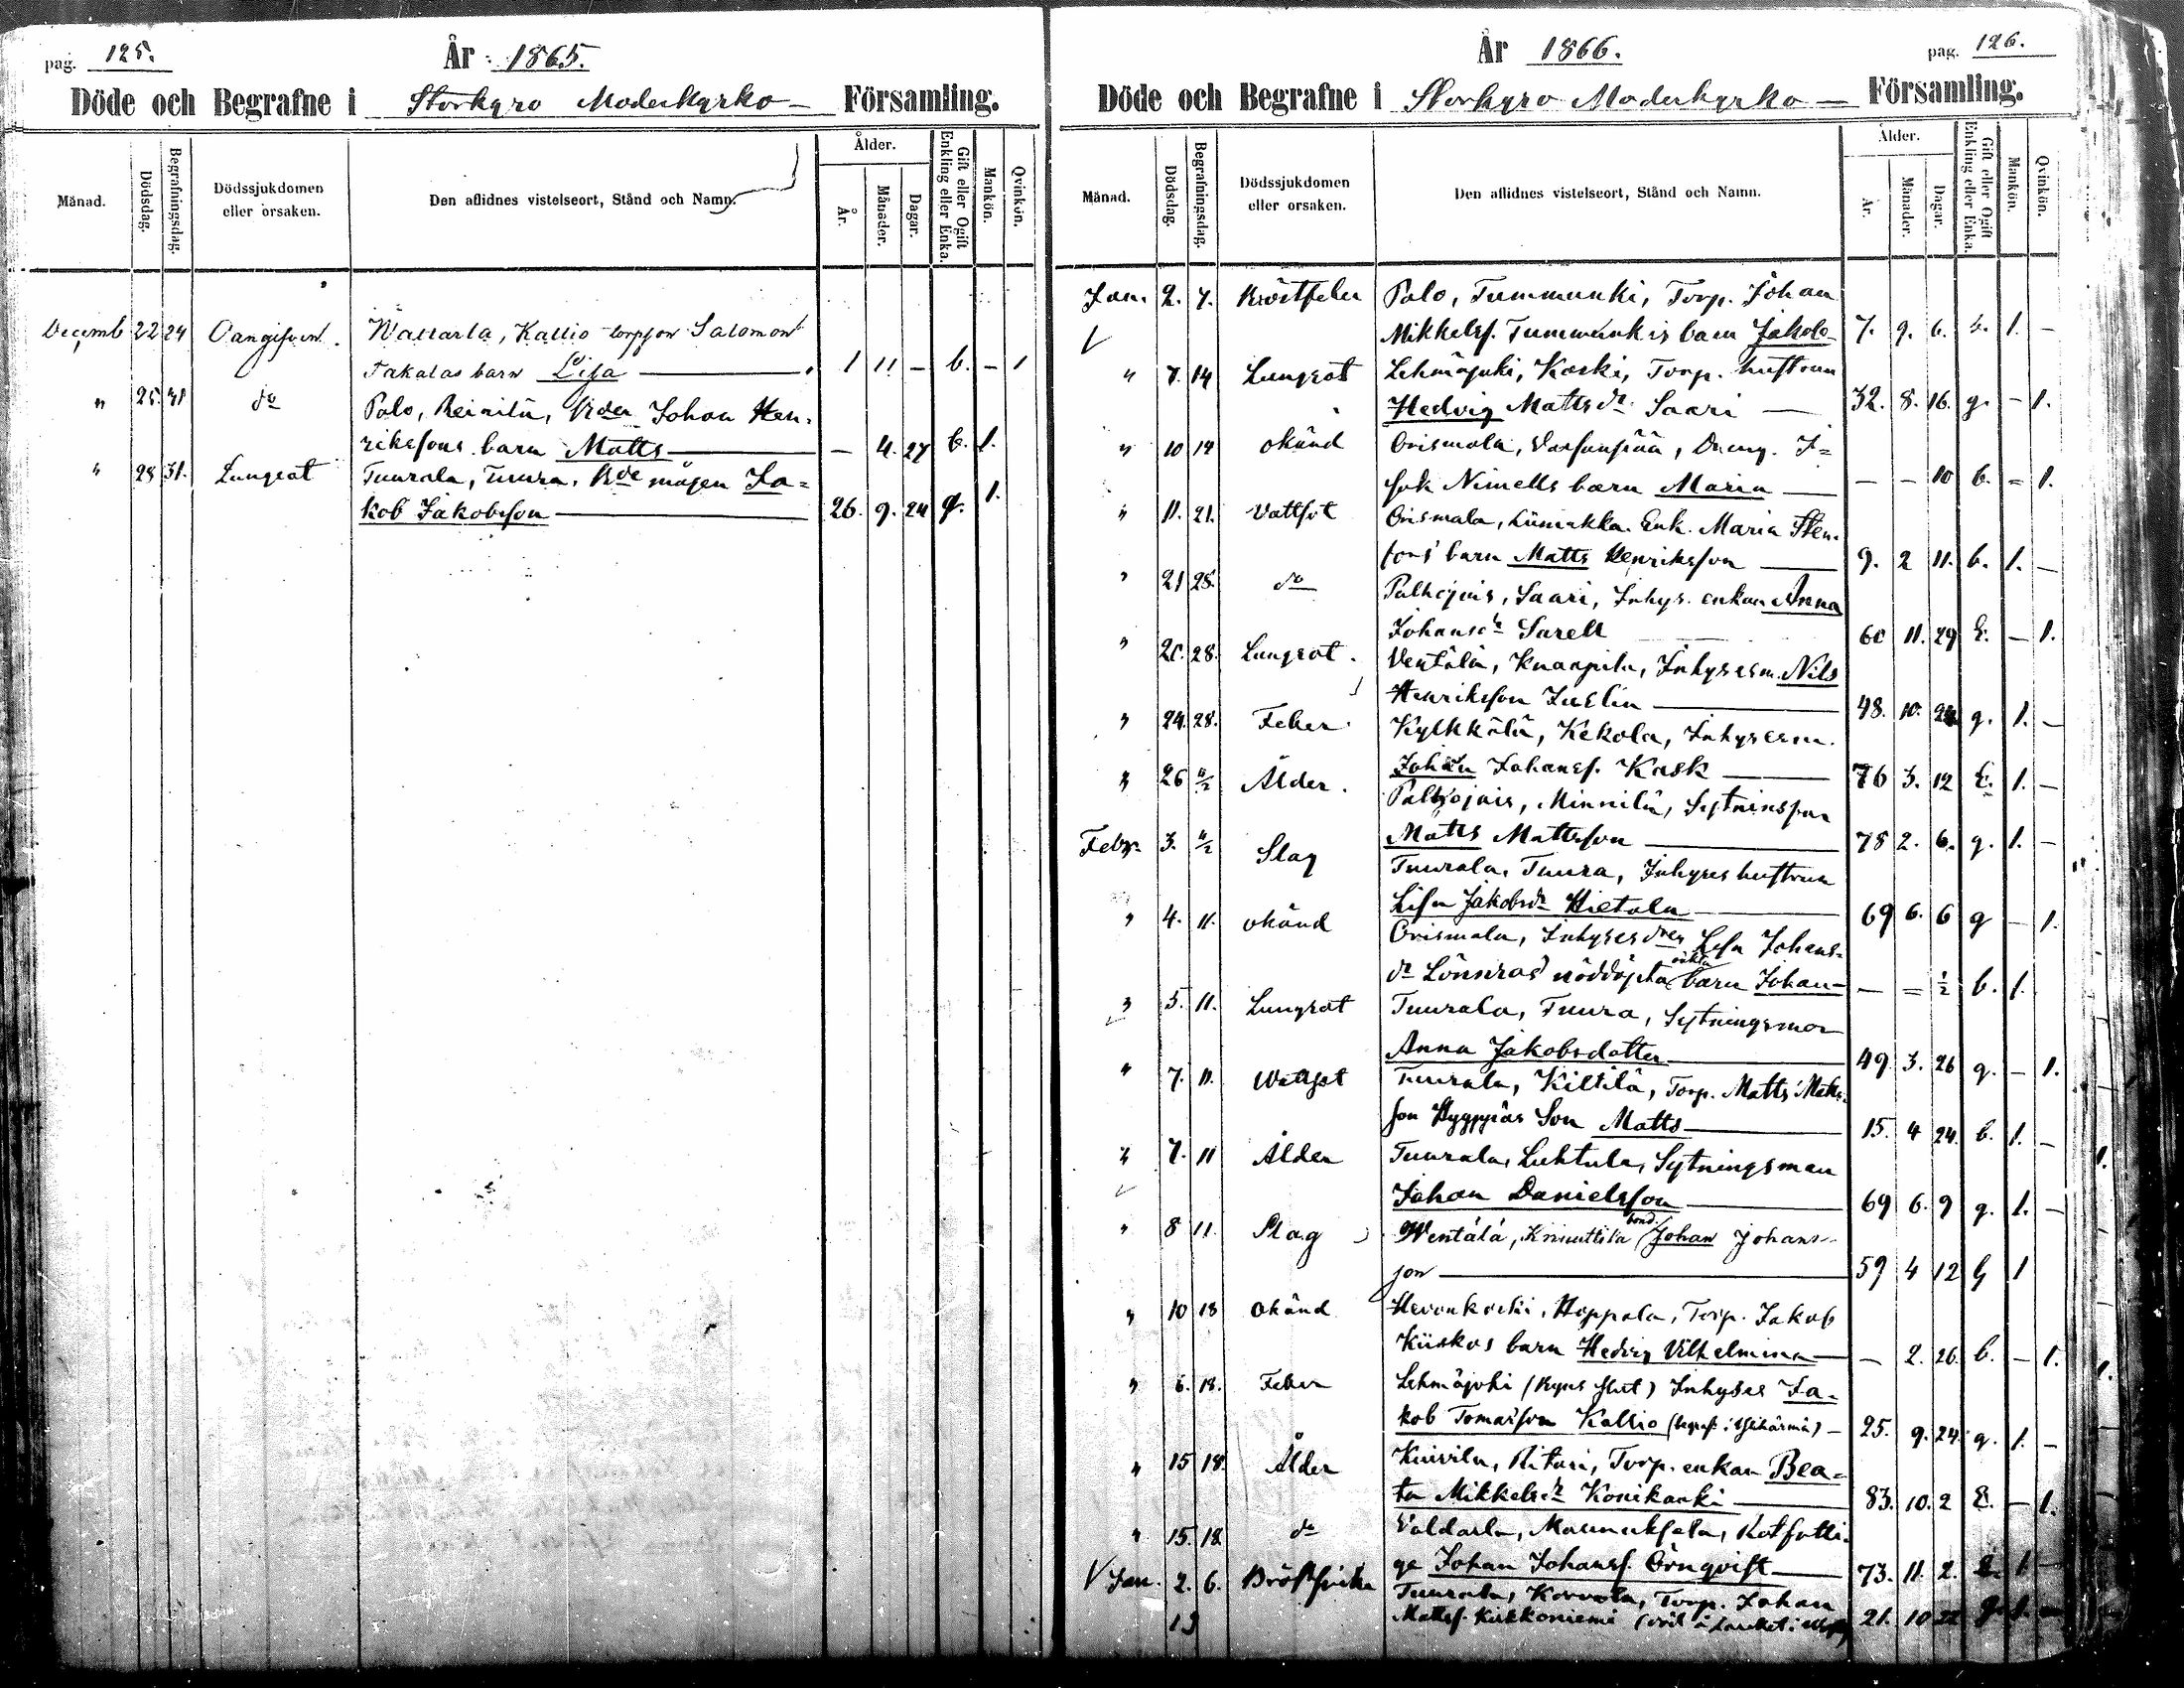 pag. 125.
År 1865.
Döde och Begrafne i Storkyro Moderkyrko- Församling.
Månad.
Dödsdag.
Begrafningsdag.
Dödssjukdomen eller orsaken.
Den aflidnes vistelseort, Stånd och Namn.
Ålder.
År.
Månader.
Dagar.
Gift eller Ogift Enkling eller Enka.
Mankön.
Qvinkön.
Decemb 22 24 Oangifven. Kallio torpson Salomon
Takalas barn Lisa 1 11 - b. - 1
" 25. 31 do Palo, Reinilä, Johan Hen-
riksons barn Matts - 4. 27 b. 1.
" 28 31. Lungsot Tuurala, Tuura, mågen Ja=
kob Jakobsson 26. 9. 24 g. 1.
År 1866.
pag. 126.
Döde och Begrafne i Storkyro Moderkyrko - Församling.
Månad.
Dödsdag.
Begrafningsdag.
Dödssjukdomen eller orsaken.
Den aflidnes vistelseort, Stånd och Namn.
Ålder.
År.
Månader.
Dagar.
Gift eller Ogift Enkling eller Enka.
Mankön.
Qvinkön.
Jan. 2. 7. Bröstfeber Palo, Tummunki, Torp. Johan
Mikkelss. Tummunkis barn Jakob 7. 9. 6. b. 1. -
" 7. 14 Lungsot Lehmäjoki, Koski, Torp. hustrun
Hedvig Mattsdr Saari 32. 8. 16. g. - 1.
" 10 14 okänd Orismala, Dreng. I=
sak Nimells barn Maria - - 10 b. - 1.
" 11. 21. Vattsot Orismala, Liimakka. Enk. Maria Sten-
fors' barn Matts Henriksson 9. 2 11. b. 1. -
" 21 28. do Palhojais, Saari, Inhys. enkan Anna
Johansdr Sarell 60 11. 29 E. - 1.
" 20. 28. Lungsot. Ventälä, Knaapila, Inhysesm. Nils
Henriksson Juslin 48. 10. g. 1. -
" 24. 28. Feber Kylkkälä, Kekola, Inhysesm.
Johan Johanss. Kask 76 3. 12 E. 1. -
" 26 4/2 Ålder. Palhojais, Minnilä, Sytninsfar
Matts Mattsson 78 2. 6. g. 1. -
Febr. 3. 4/2 Slag Tuurala, Tuura, Inhyses hustrun
Lisa Jakobsdr Hietala 69 6. 6 g - 1.
" 4. 11. okänd Orismala, Lisa Johans-
dr Lönnros' nöddöpta oäkta barn Johan - = 1/2 b. 1.
" 5. 11. Lungsot Tuurala, Tuura, Sytningsmor
Anna Jakobsdotter 49. 3. 26 g. - 1.
" 7. 11. Wattsot Tuurala, Kiltilä, Torp. Matts Matts-
son Hyyppiäs Son Matts 15. 4 24. b. 1. -
" 7. 11 Ålder Tuurala, Luhtala, Sytningsman
Johan Danielsson 69 6. 9 g. 1. -
" 8 11. Slag Wentälä, Knuuttila bond. Johan Johans-
son 59 4 12 G 1
" 10 18 okänd Hevonkoski, Hoppala, Torp. Jakob
Kiiskos barn Hedvig Vilhelmina - 2. 26. b. - 1.
" 6. 18. Feber Lehmäjoki Inhyses Ja-
kob Tomasson Kallio 25. 9. 24. g. 1. -
" 15 18. Ålder Kuivila, Ritari, Torp. enkan Bea-
ta Mikkelsdr Konikoski 83. 10. 2 E. - 1.
" 15. 18 do Valdarla, Maunuksela, Rotfatti-
ge Johan Johanss. Örnqvist 73. 11. 2. E. 1 -
Jan. 2. 6. Bröstsjuka Tuurala, Korvola, Torp. Johan
13 Mattss. Kirkkoniemi 21. 10 22 g. 1. -